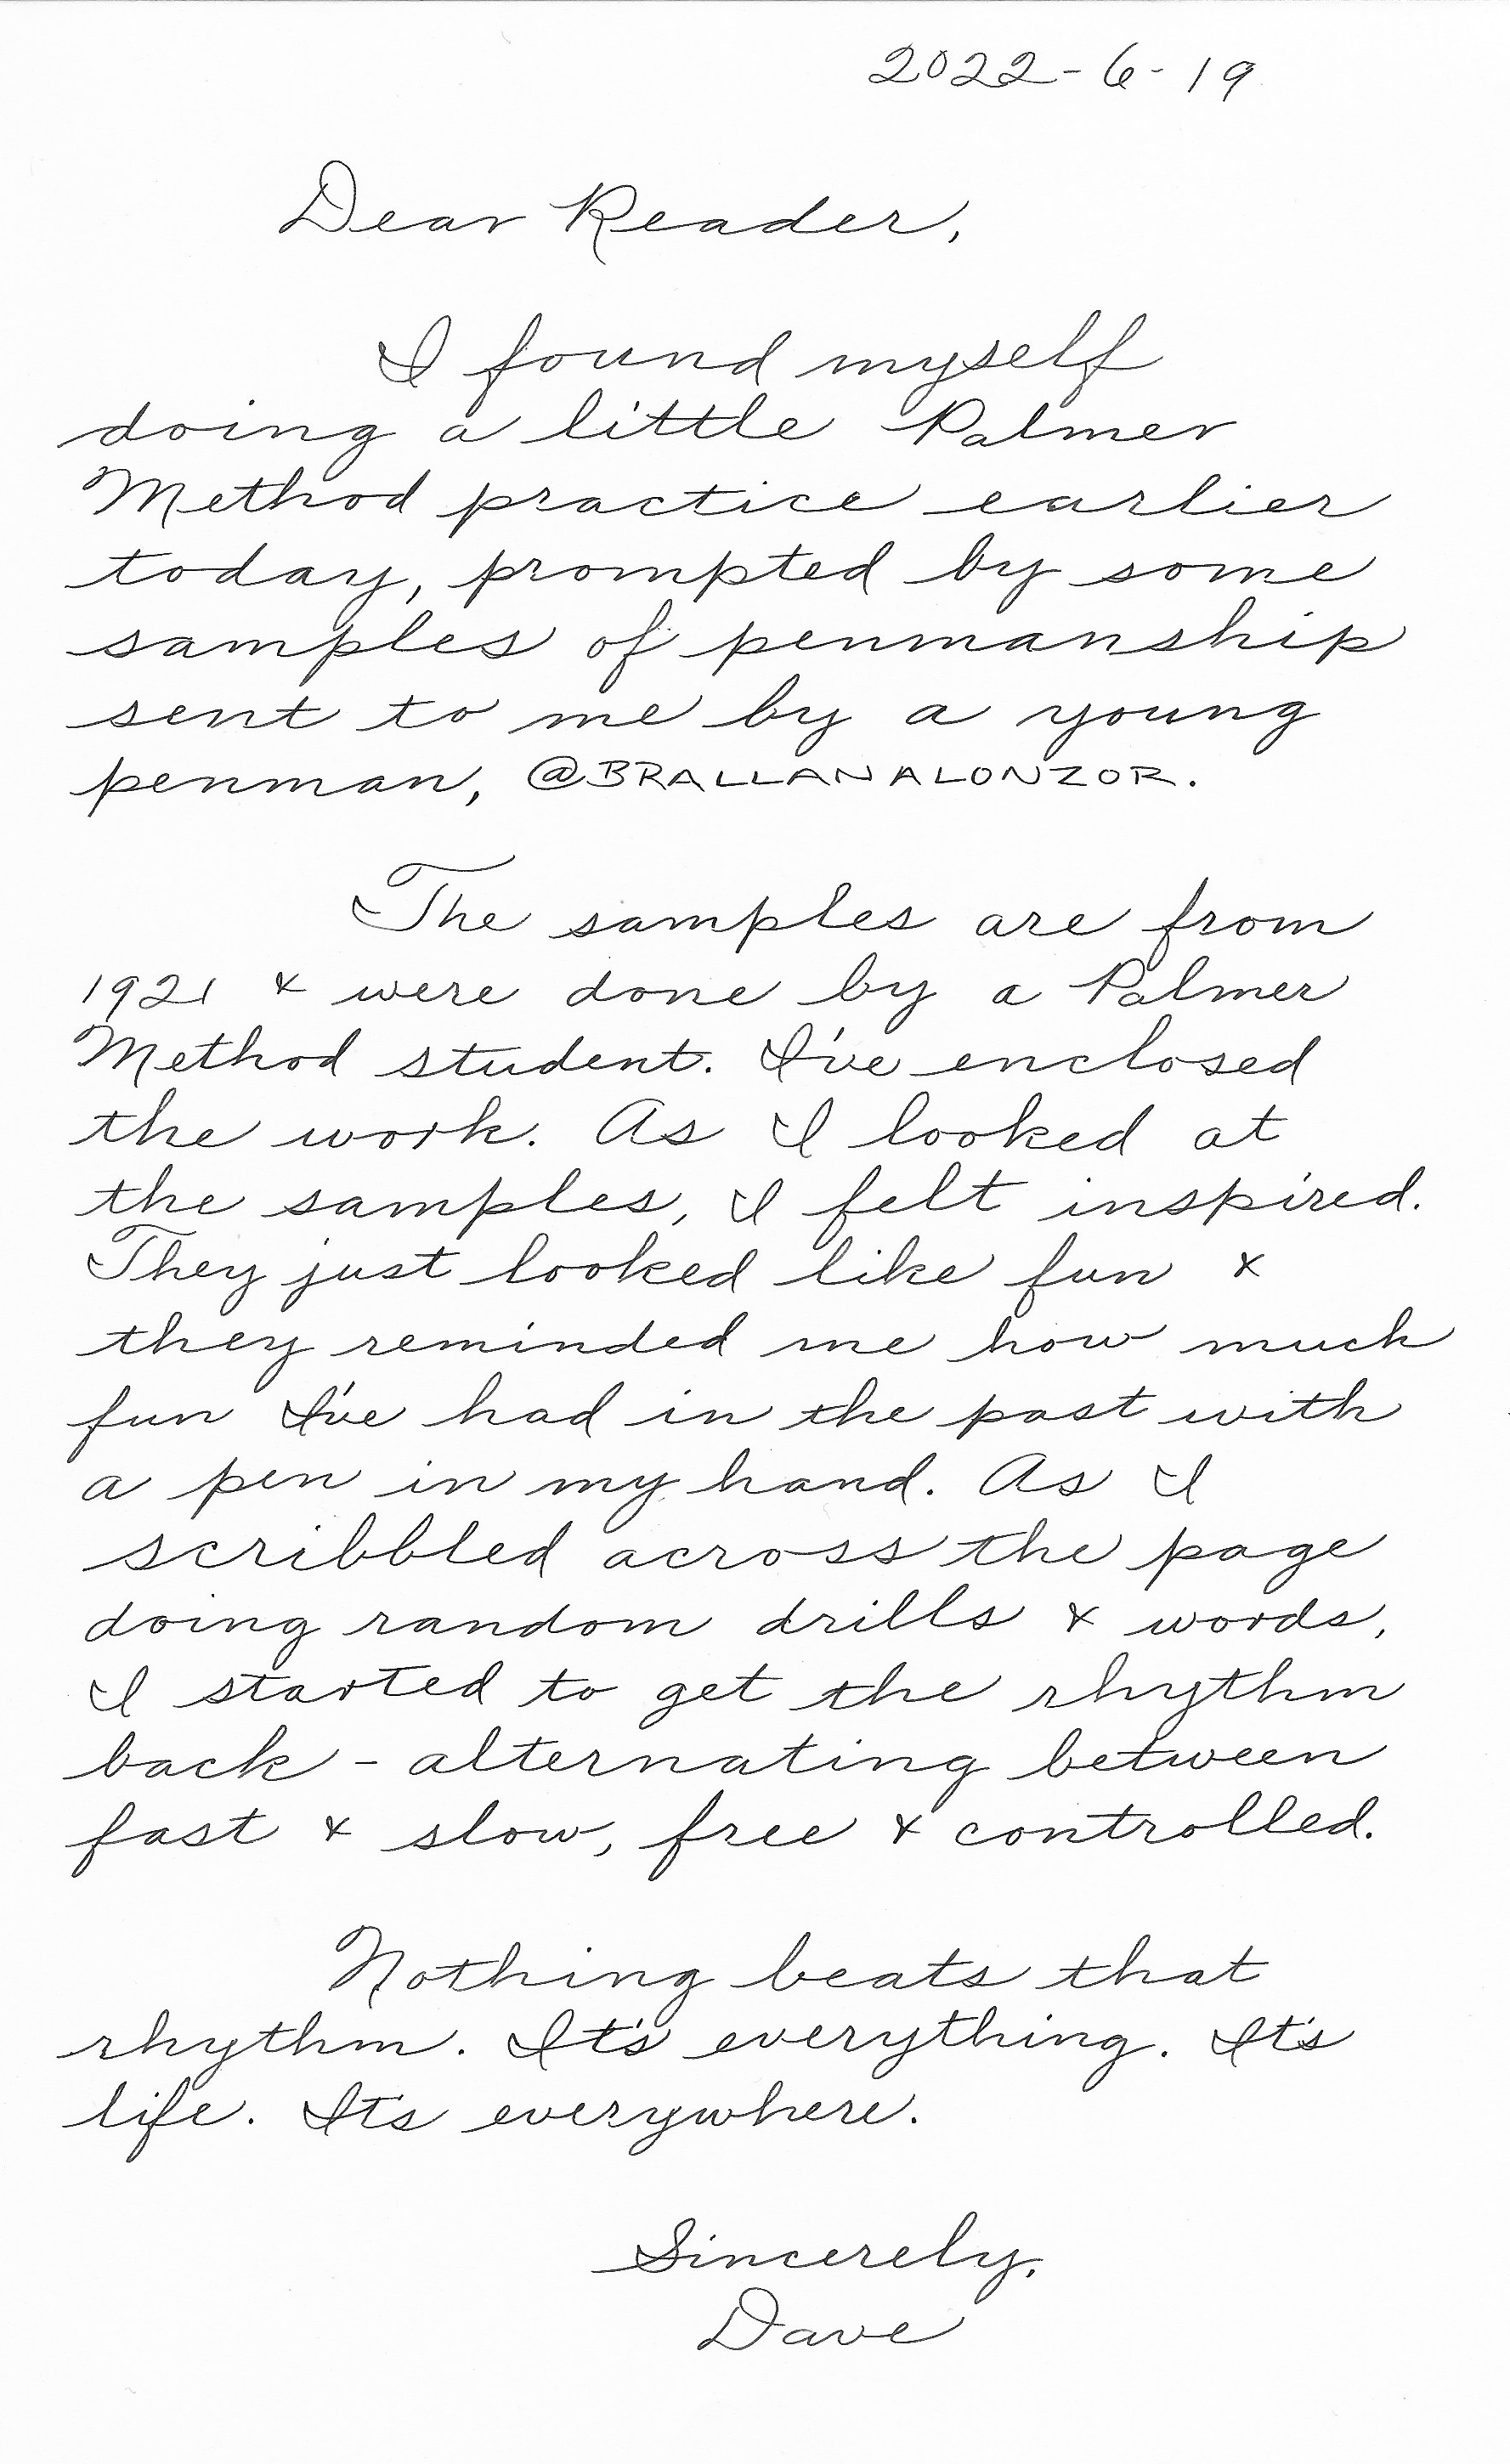 2022-6-19
Dear Reader,
I found myself
doing a little Palmer
Method practice earlier
today, prompted by some
samples of penmanship
sent to me by a young
penman, @BRALLANALONZOR.
The samples are from
1921 & were done by a Palmer
Method student. I've enclosed
the work. As I looked at
the samples, I felt inspired.
They just looked like fun &
they reminded me how much
fun I've had in the past with
a pen in my hand. As I
scribbled across the page
doing random drills & words,
I started to get the rhythm
back - alternating between
fast & slow, free & controlled.
Nothing beats that
rhythm. It's everything. It's
life. It's everywhere.
Sincerely,
Dave